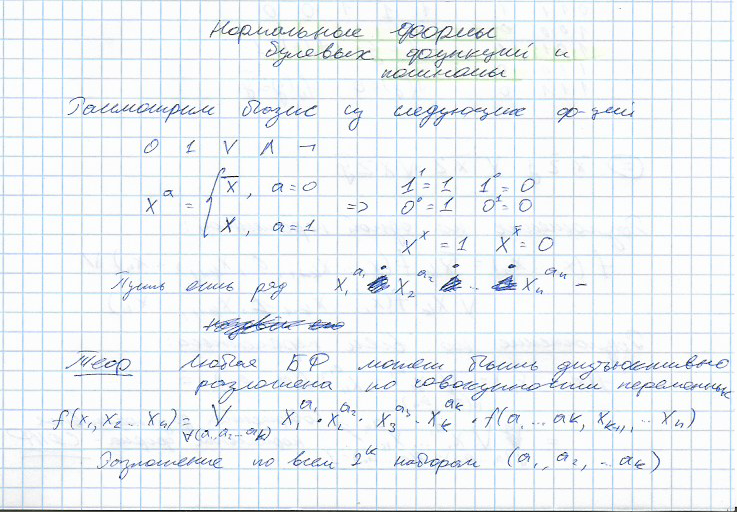 Нормальные формы
булевых функций и
полиномы
Рассмотрим базис из следующих ф-ций
0 1 ∨ ∧ ¬
x^a = { x̅, a=0
x, a=1
=> 1¹ = 1 1⁰ = 0
0⁰ = 1 0¹ = 0
x^x = 1 x^x̅ = 0
Пусть есть ряд x₁^a₁ · x₂^a₂ · ... · xₙ^aₙ –
Теор Любая БФ может быть дизъюнктивно
разложена по совокупности переменных
f(x₁, x₂ ... xₙ) = ∨ x₁^a₁ · x₂^a₂ · x₃^a₃ · xₖ^aₖ · f(a₁ ... aₖ, xₖ₊₁, ... xₙ)
∀(a₁, a₂ ... aₖ)
Разложение по всем 2^k наборам (a₁, a₂, ... aₖ)